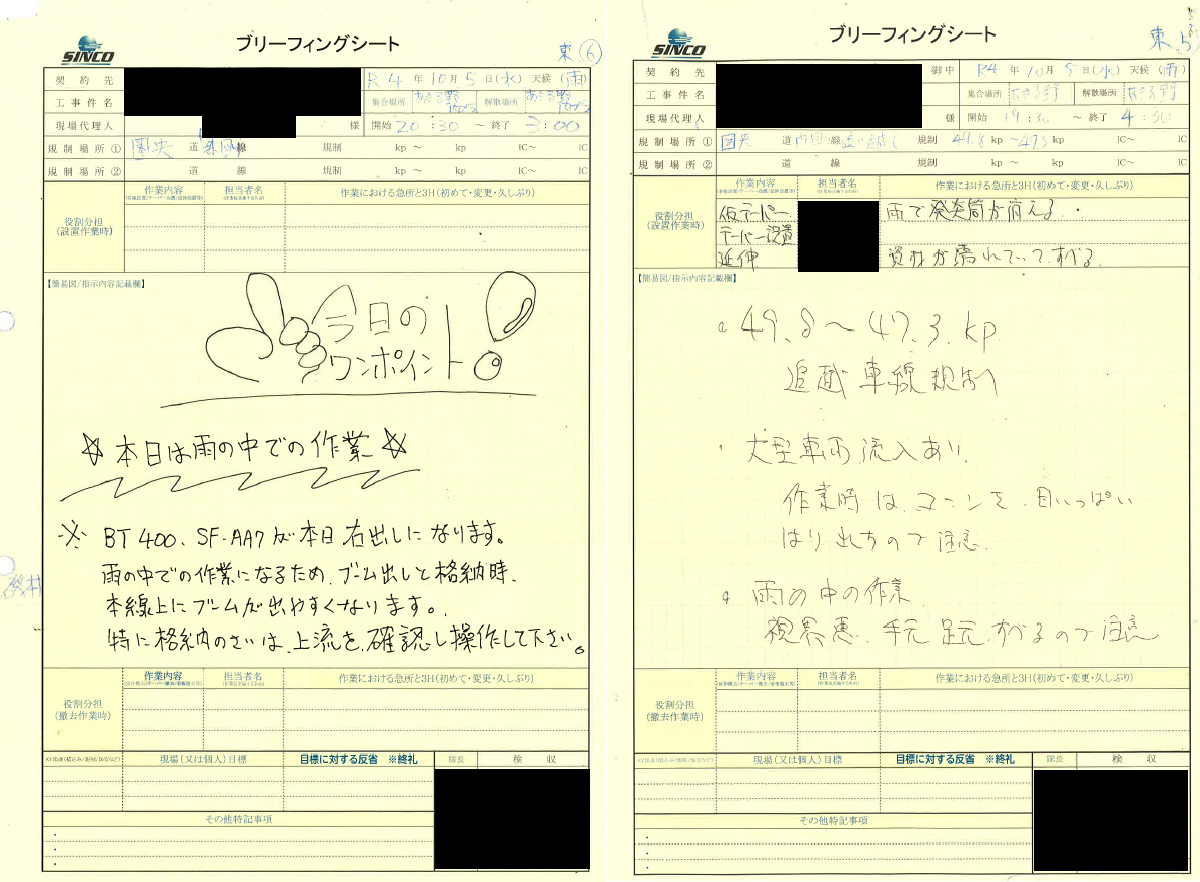 SINCO
ブリーフィングシート
東⑥
契約先
R4年10月5日(水)天候(雨)
工事件名
集合場所 あきる野
解散場所 あきる野
現場代理人
様 開始20:30 ～ 終了3:00
規制場所① 圏央道 線 規制 kp～ kp IC～ IC
規制場所② 道 線 規制 kp～ kp IC～ IC
作業内容 担当者名 作業における急所と3H(初めて・変更・久しぶり)
役割分担
(設置作業時)
【簡易図/指示内容記載欄】
今日の
ワンポイント!
☆本日は雨の中での作業☆
※ BT400、SF-AA7が本日右出しになります。
雨の中での作業になるため、ブーム出しと格納時、
本線上にブームが出やすくなります。
特に格納のさいは、上流を、確認し操作して下さい。
作業内容 担当者名 作業における急所と3H(初めて・変更・久しぶり)
役割分担
(撤去作業時)
現場(又は個人)目標 目標に対する反省 ※終礼 隊長 検収
その他特記事項
SINCO
ブリーフィングシート
東5
契約先
御中 R4年10月5日(水)天候(雨)
工事件名
集合場所 あきる野 解散場所 あきる野
現場代理人
様 開始19:30 ～ 終了4:30
規制場所① 圏央道内回線追い越し 規制49.8kp～47.3kp IC～ IC
規制場所② 道 線 規制 kp～ kp IC～ IC
作業内容 担当者名 作業における急所と3H(初めて・変更・久しぶり)
役割分担
(設置作業時)
仮テーパー 雨で発炎筒が消える。
テーパー設置
延伸 資材が濡れていて、すべる。
【簡易図/指示内容記載欄】
・49.8～47.3kp
追越車線規制
・大型車両流入あり、
作業時は、コーンを、目いっぱい
はり出すので注意
・雨の中の作業
視界悪、手元足元、すべるので注意
作業内容 担当者名 作業における急所と3H(初めて・変更・久しぶり)
役割分担
(撤去作業時)
現場(又は個人)目標 目標に対する反省 ※終礼 隊長 検収
その他特記事項